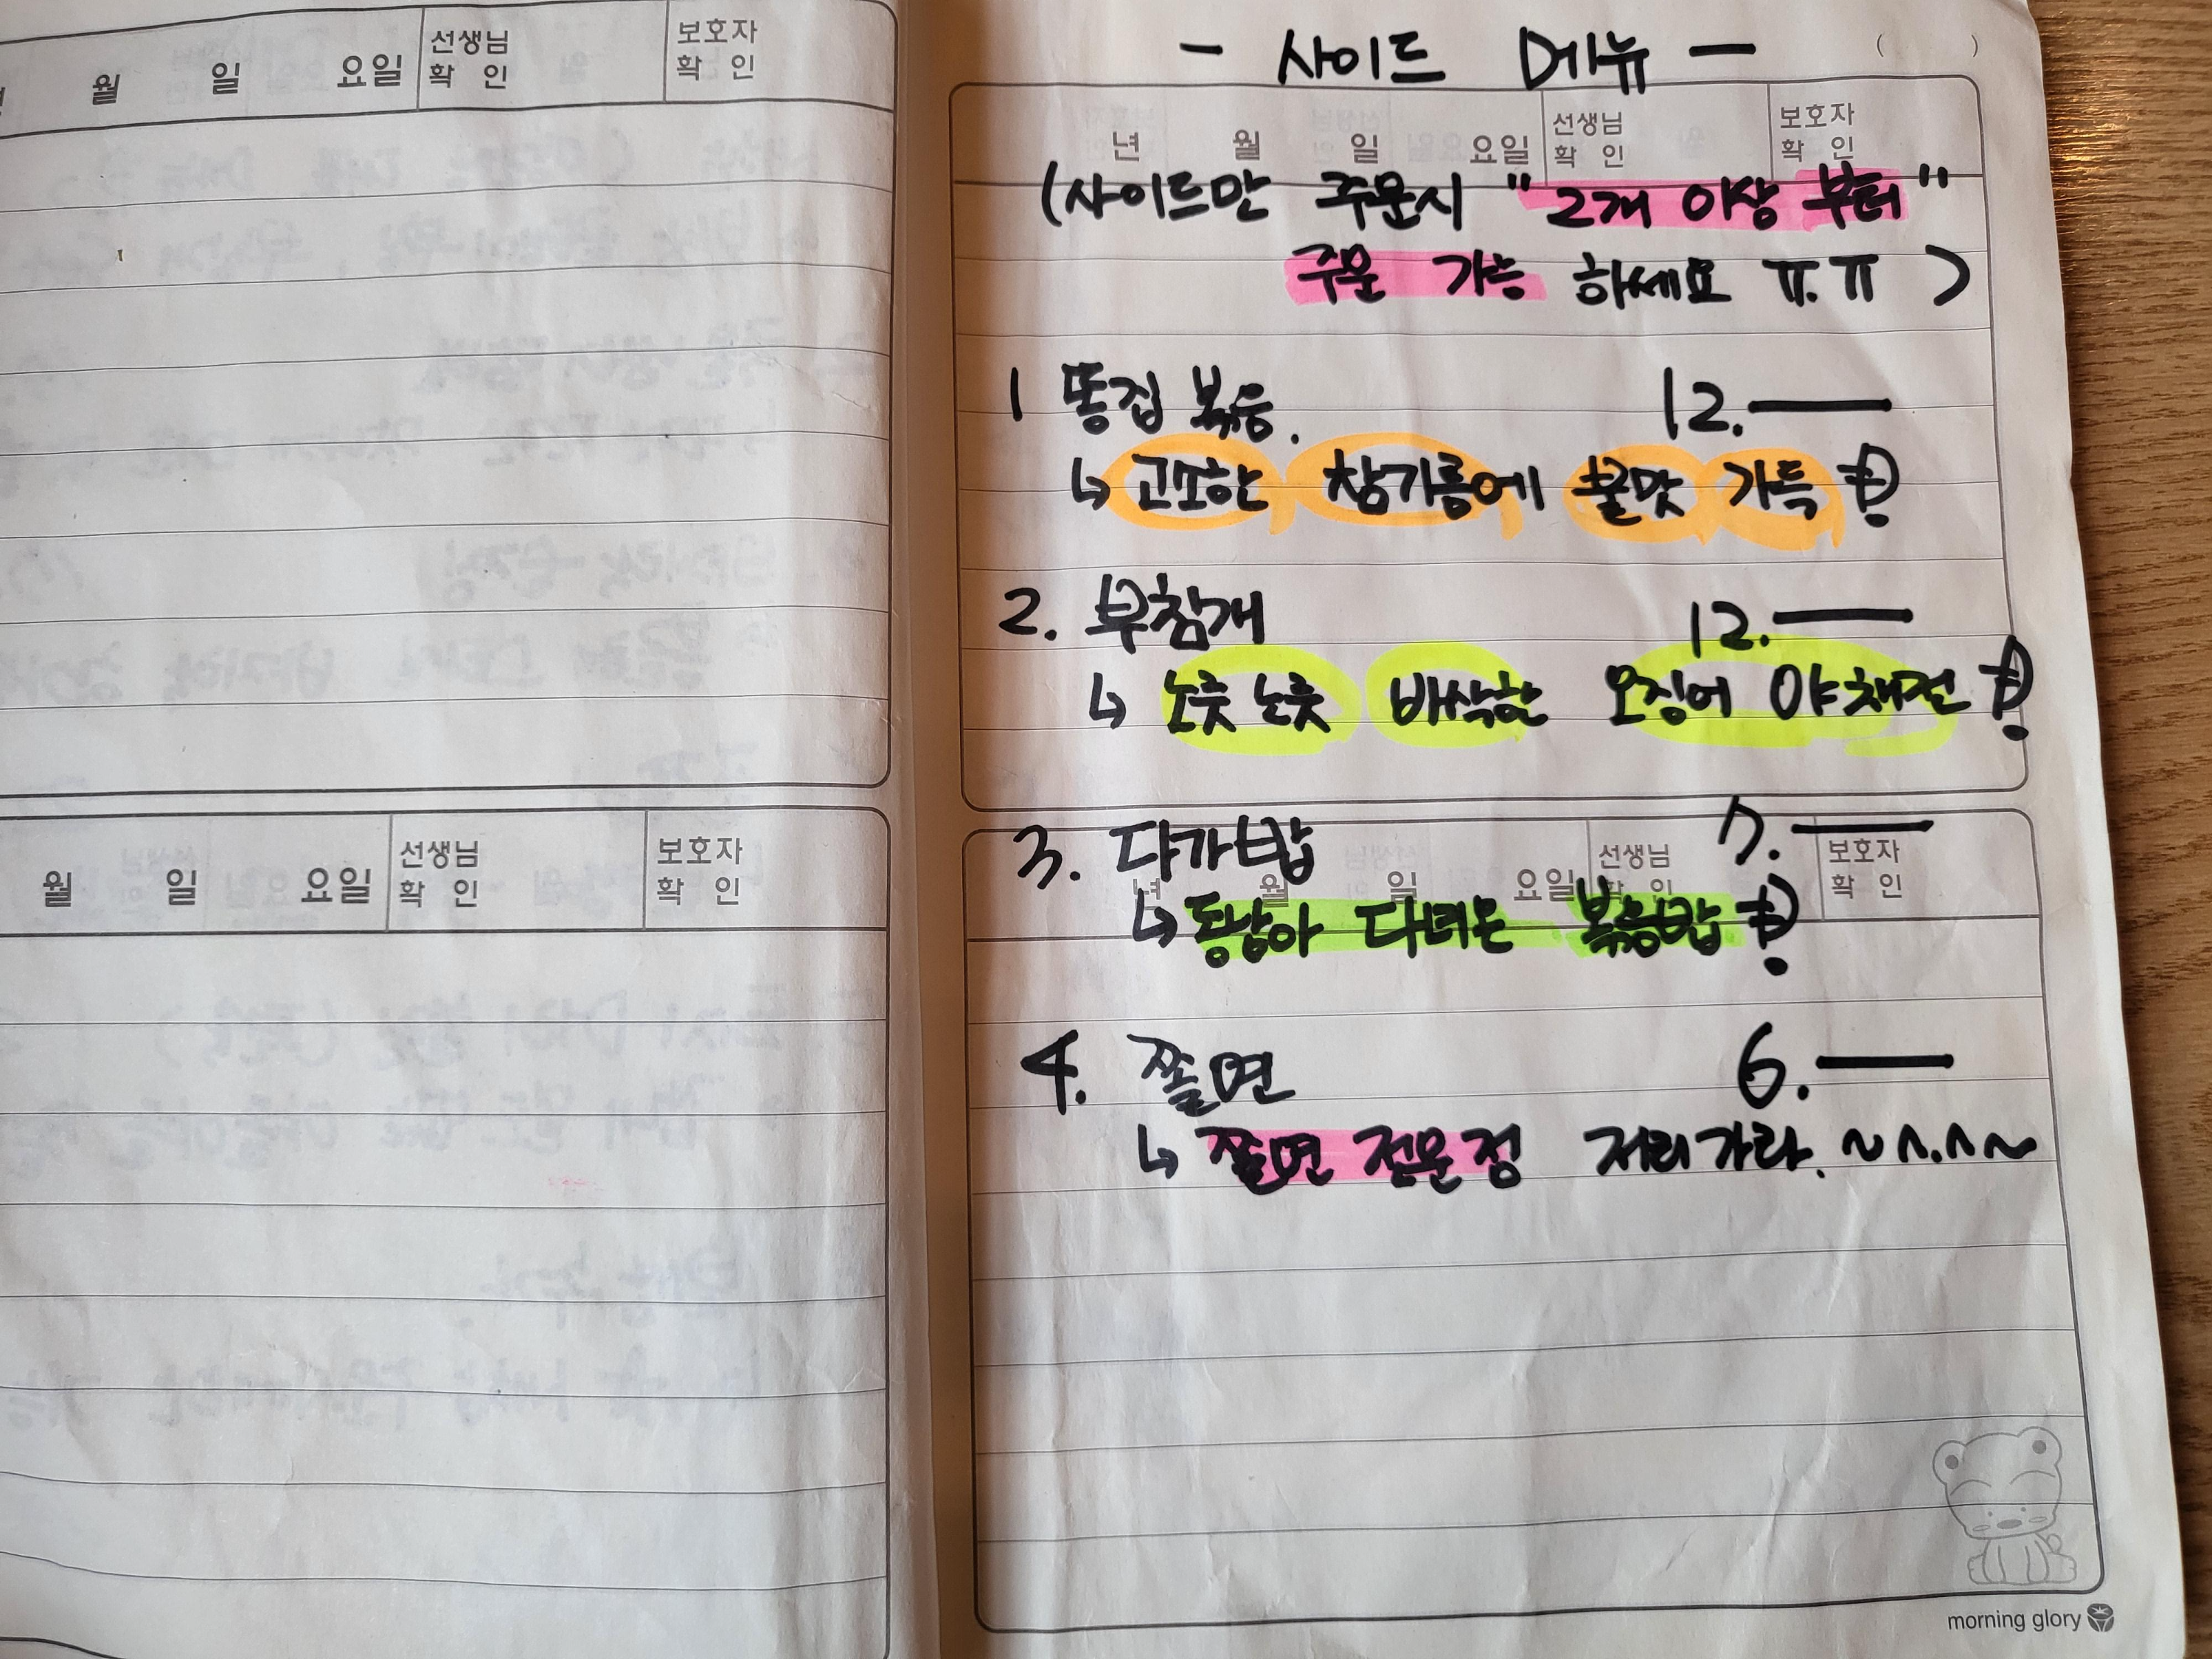 월 일 요일 선생님 확 인 보호자 확 인
월 일 요일 선생님 확 인 보호자 확 인
- 사이드 메뉴 -
( )
년 월 일 요일 선생님 확 인 보호자 확 인
(사이드만 주문시 "2개 이상 부터"
주문 가능 하세요 ㅠ.ㅠ )
1 똥집 볶음. 12.—
↳ 고소한 참기름에 불맛 가득
2. 부침개 12.—
↳ 노릇 노릇 바삭한 오징어 야채전
3. 다가밥 7.—
년 월 일 요일 선생님 확 인 보호자 확 인
↳ 동남아 다녀온 볶음밥
4. 쫄면 6.—
↳ 쫄면 전문점 저리가라. ~^.^~
morning glory